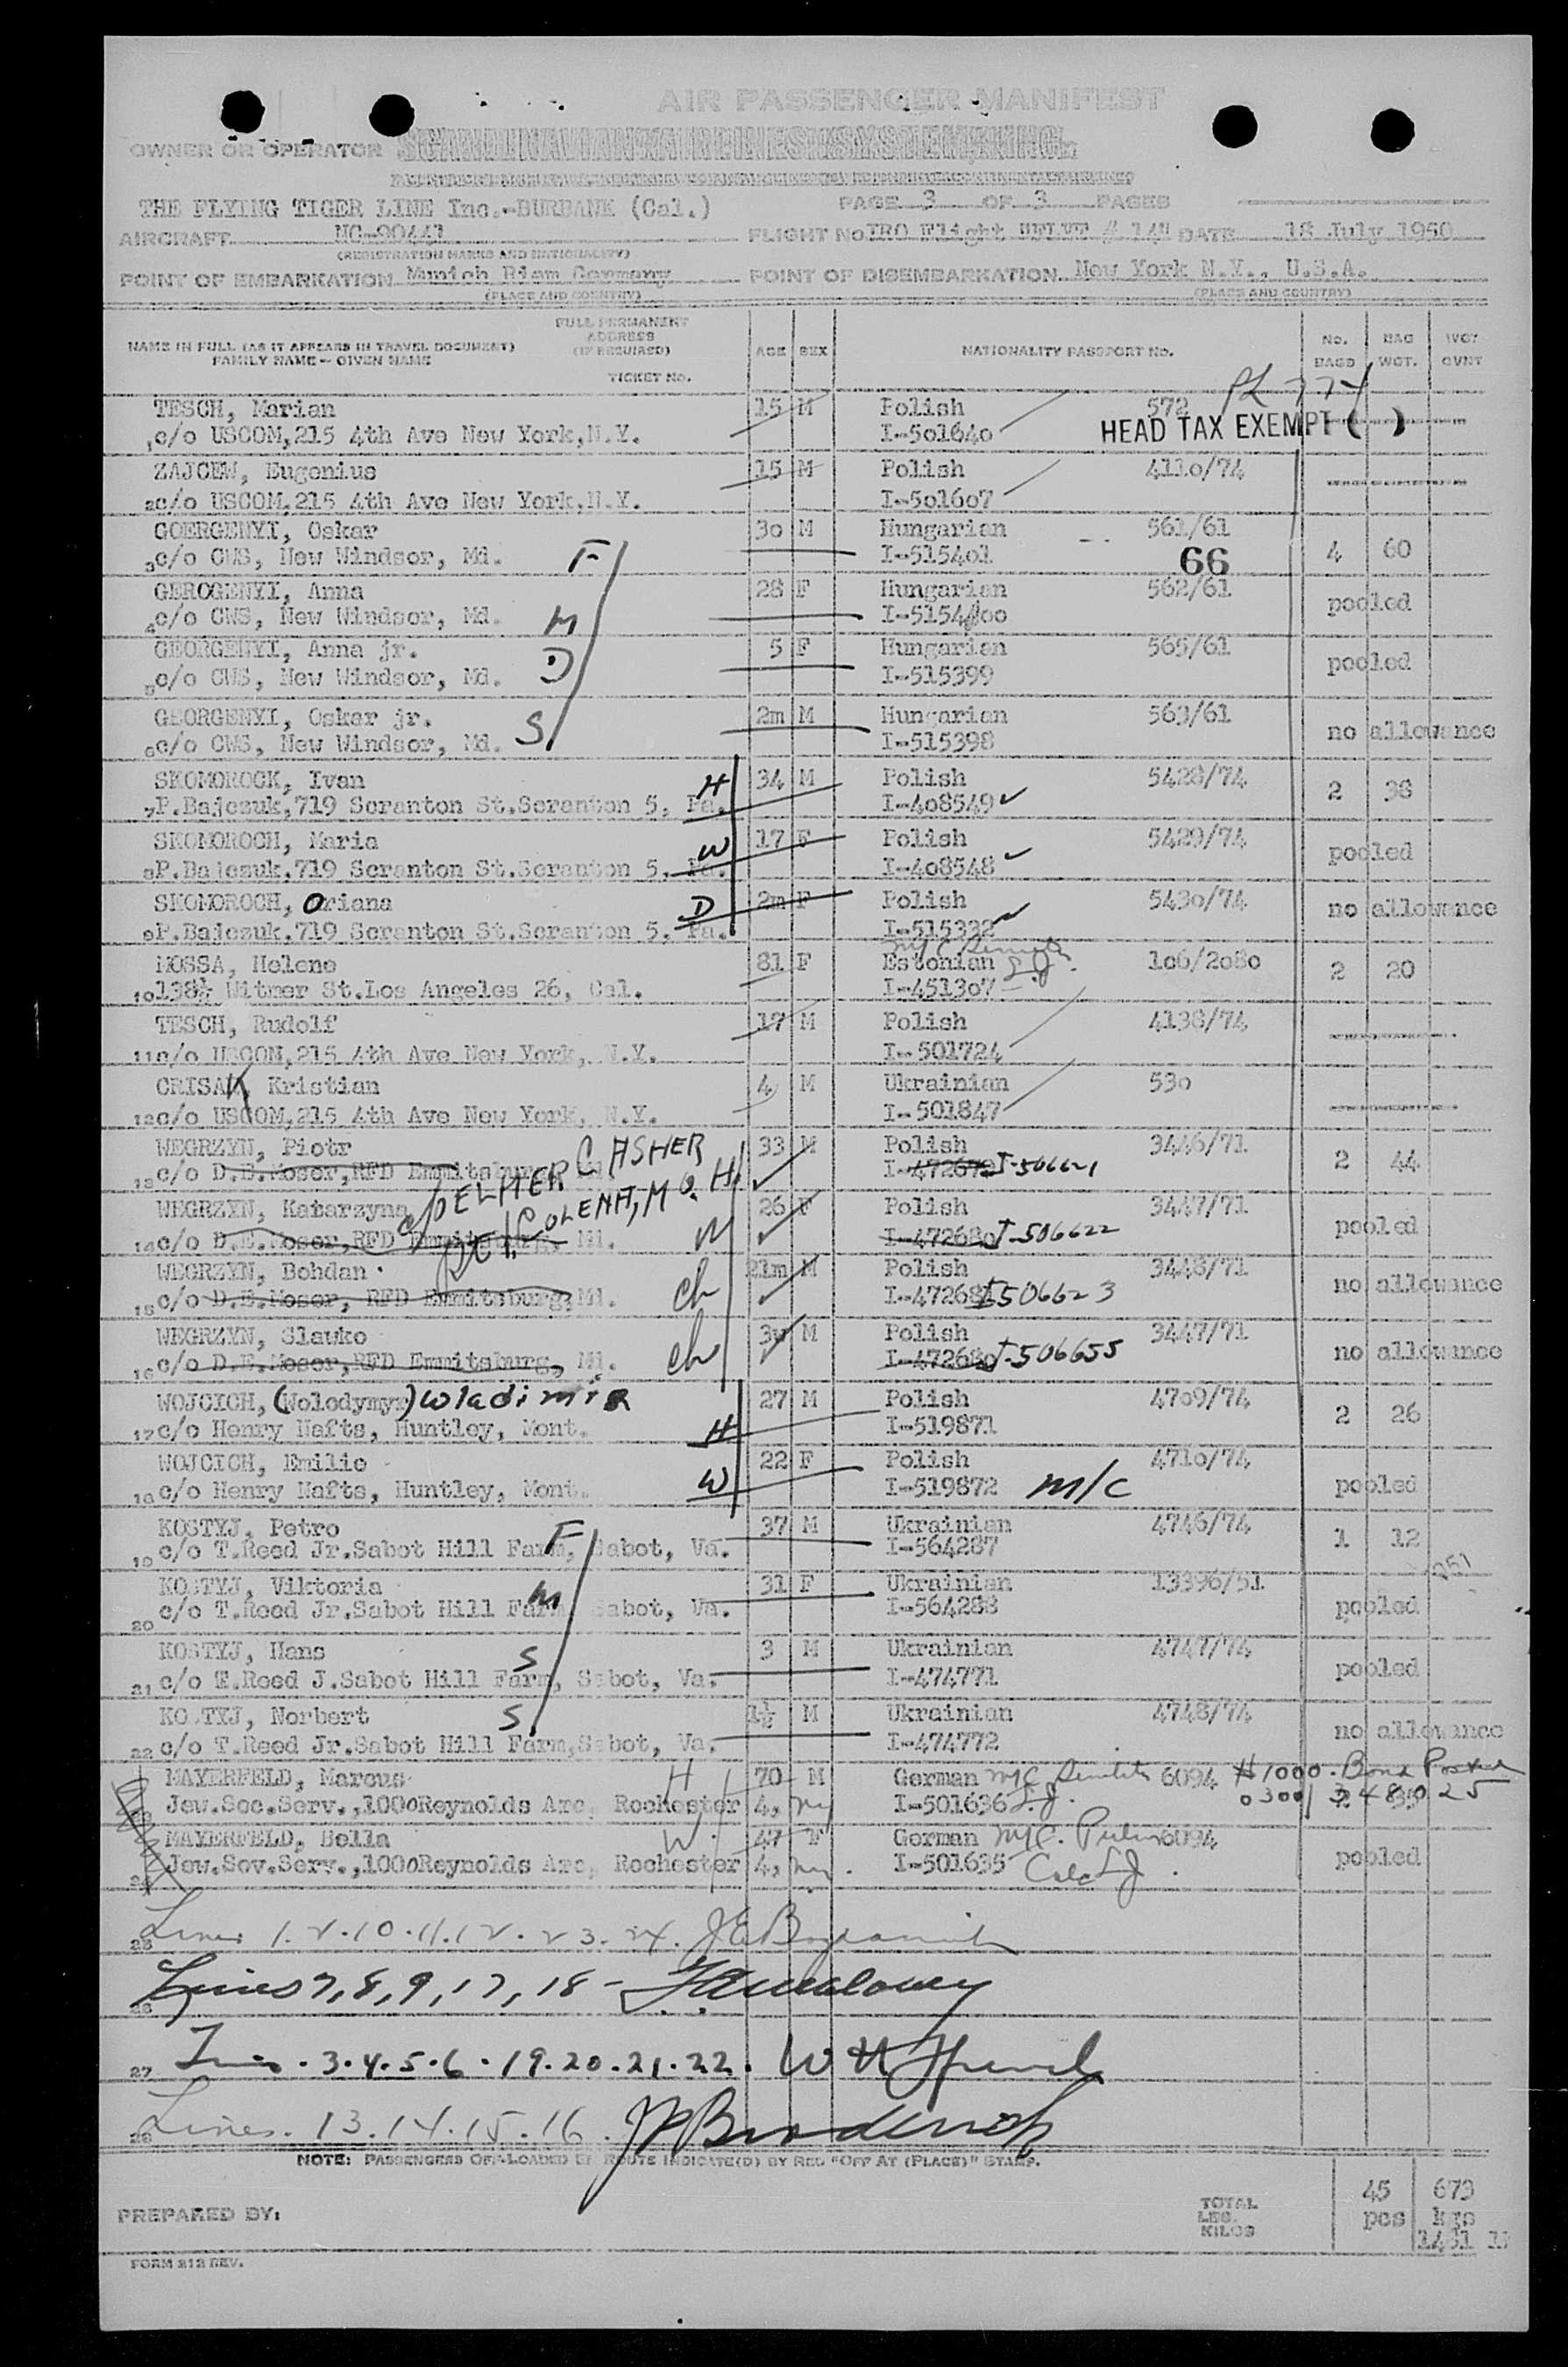 AIR PASSENGER MANIFEST
OWNER OR OPERATOR
THE FLYING TIGER LINE Inc.-BURBANK (Cal.) PAGE 3 OF 3 PAGES
AIRCRAFT NC-90441 FLIGHT No IRO Flight # 14" DATE 18 July 1950
(REGISTRATION MARKS AND NATIONALITY)
POINT OF EMBARKATION Munich Riem Germany POINT OF DISEMBARKATION New York N.Y., U.S.A.
(PLACE AND COUNTRY) (PLACE AND COUNTRY)
NAME IN FULL (AS IT APPEARS IN TRAVEL DOCUMENT) FAMILY NAME - GIVEN NAME FULL PERMANENT ADDRESS (IF REQUIRED) TICKET No. AGE SEX NATIONALITY PASSPORT No. No. BAGS BAG WGT.
PL 774
TESCH, Marian 15 M Polish 572
1 c/o USCOM, 215 4th Ave New York, N.Y. I-501640 HEAD TAX EXEMPT ( )
ZAJCEW, Eugenius 15 M Polish 4110/74
2 c/o USCOM, 215 4th Ave New York, N.Y. I-501607
GOERGENYI, Oskar 30 M Hungarian 561/61
3 c/o CWS, New Windsor, Md. F I-515401 66 4 60
GEROGENYI, Anna 28 F Hungarian 562/61 pooled
4 c/o CWS, New Windsor, Md. M I-515400
GEORGENYI, Anna jr. 5 F Hungarian 565/61 pooled
5 c/o CWS, New Windsor, Md. D I-515399
GEORGENYI, Oskar jr. 2m M Hungarian 563/61 no allowance
6 c/o CWS, New Windsor, Md. S I-515398
SKOMOROCK, Ivan H 34 M Polish 5428/74 2 38
7 P.Bajczuk, 719 Scranton St.Scranton 5, Pa. I-408549
SKOMOROCH, Maria W 17 F Polish 5429/74 pooled
8 P.Bajczuk. 719 Scranton St.Scranton 5, Pa. I-408548
SKOMOROCH, Oriana D 2m F Polish 5430/74 no allowance
9 P.Bajczuk. 719 Scranton St.Scranton 5, Pa. I-515332
MOSSA, Helene 81 F Estonian 106/2080 2 20
10 138½ Witmer St.Los Angeles 26, Cal. I-451307
TESCH, Rudolf 17 M Polish 4138/74
11 c/o USCOM, 215 4th Ave New York, N.Y. I-501724
CRISAK, Kristian 4 M Ukrainian 530
12 c/o USCOM, 215 4th Ave New York, N.Y. I-501847
WEGRZYN, Piotr 33 M Polish 3446/71 2 44
13 c/o D.E.Moser, RFD Emmitsburg I-472679 I-506621
c/o ELMER C ASHER
WEGRZYN, Katarzyna 26 F Polish 3447/71 pooled
14 c/o D.E.Moser, RFD Emmitsburg, Md. I-472680 I-506622
WEGRZYN, Bohdan 21m M Polish 3448/71 no allowance
15 c/o D.E.Moser, RFD Emmitsburg, Md. ch I-506623
WEGRZYN, Slawko M Polish 3447/71 no allowance
16 c/o D.E.Moser, RFD Emmitsburg, Md. ch I-472680 I-506655
WOJCICH, (Wolodymyr) Wladimir 27 M Polish 4709/74 2 26
17 c/o Henry Nafts, Huntley, Mont. H I-519871
WOJCICH, Emilie 22 F Polish 4710/74 pooled
18 c/o Henry Nafts, Huntley, Mont. W I-519872 M/C
KOSTYJ, Petro F 37 M Ukrainian 4746/74 1 12
19 c/o T.Reed Jr.Sabot Hill Farm, Sabot, Va. I-564287
KOSTYJ, Viktoria M 31 F Ukrainian 13396/51 pooled
20 c/o T.Reed Jr.Sabot Hill Farm, Sabot, Va. I-564288
KOSTYJ, Hans S 3 M Ukrainian 4747/74 pooled
21 c/o T.Reed J.Sabot Hill Farm, Sabot, Va. I-474771
KOSTYJ, Norbert S 1½ M Ukrainian 4748/74 no allowance
22 c/o T.Reed Jr.Sabot Hill Farm, Sabot, Va. I-474772
MAYERFELD, Marcus H 70 M German M/C 6094 $1000. Bond Posted
23 Jew.Soc.Serv., 1000 Reynolds Arc, Rochester 4, NY I-501636
MAYERFELD, Bella W 47 F German M/C 6094 pooled
24 Jew.Sov.Serv., 1000 Reynolds Arc, Rochester 4, NY. I-501635
25 Lines 1. 2. 10. 11. 12. 23. 24.
26 Lines 7, 8, 9, 17, 18 -
27 Lines. 3. 4. 5. 6. 19. 20. 21. 22.
28 Lines. 13. 14. 15. 16. JP Broderick
NOTE: PASSENGERS OFF-LOADED EN ROUTE INDICATE(D) BY RED "OFF AT (PLACE)" STAMP.
PREPARED BY: TOTAL LBS. KILOS 45 pcs 673 kgs
FORM 212 REV.